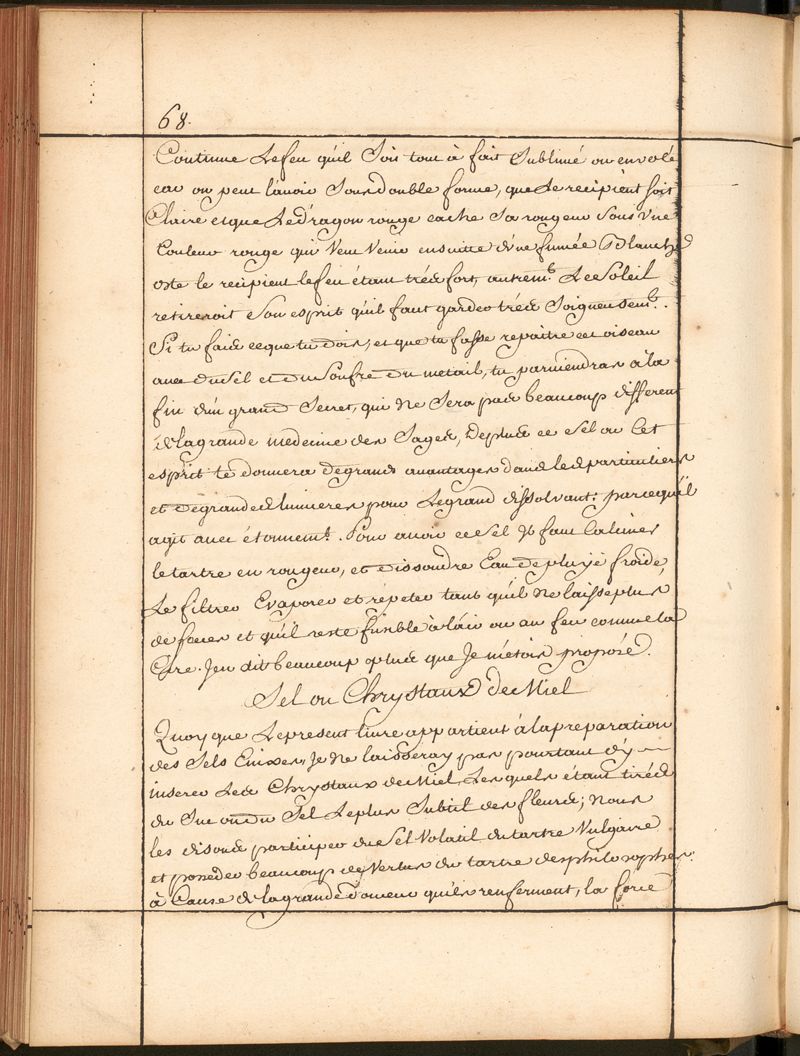 68.
Continue Le feu qu'il Soit tout à fait Sublimé ou envolé
car on peut l'avoir Sous double forme, que Le recipient soit
Claire et que Le dragon rouge cache Sa rougeur Sous Une
Couleur rouge qui Veut Venir ensuitte d'une fumée Blanche
oste le recipient le feu étant trés fort, autremt. Le Soleil
retireroit Son esprit qu'il faut garder trés Soigneusemt.
Si tu fais ce que tu dois, et que tu fasse repaitre cet oiseau
avec du Sel et du Soufre du metail, tu parviendras à la
fin d'un grand Secret, qui ne Sera pas beaucoup different
de la grande medecine des Sages, De plus ce Sel ou Cet
esprit te donnera de grands avantages dans les particuliers
et de grandes lumieres pour Le grand dissolvant: parcequ'il
agit avec étonnemt. Pour avoir ce Sel Il faut Calciner
le tartre en rougeur, et dissoudre Eau de pluye froide,
Le filtrer Evaporer et répeter tant qu'il ne laisse plus
de feces et qu'il reste fusible à l'air ou au feu comme la
Cire. J'en dit beaucoup plus que Je m'étois proposé.
Sel ou Chrystaux de Miel
Quoy que Le present livre appartient à la preparation
des Sels Je ne laisseray pas pourtant d'y
inserer Les Chrystaux de Miel, Lesquels étant tirés
du Suc ou du Sel Le plus Subtil des fleurs; Nous
les disons participer du Sel Volatil du tartre Vulgaire
et posseder beaucoup de Vertus du tartre des philosophes.
à Cause de la grande douceur qu'ils renferment, la force